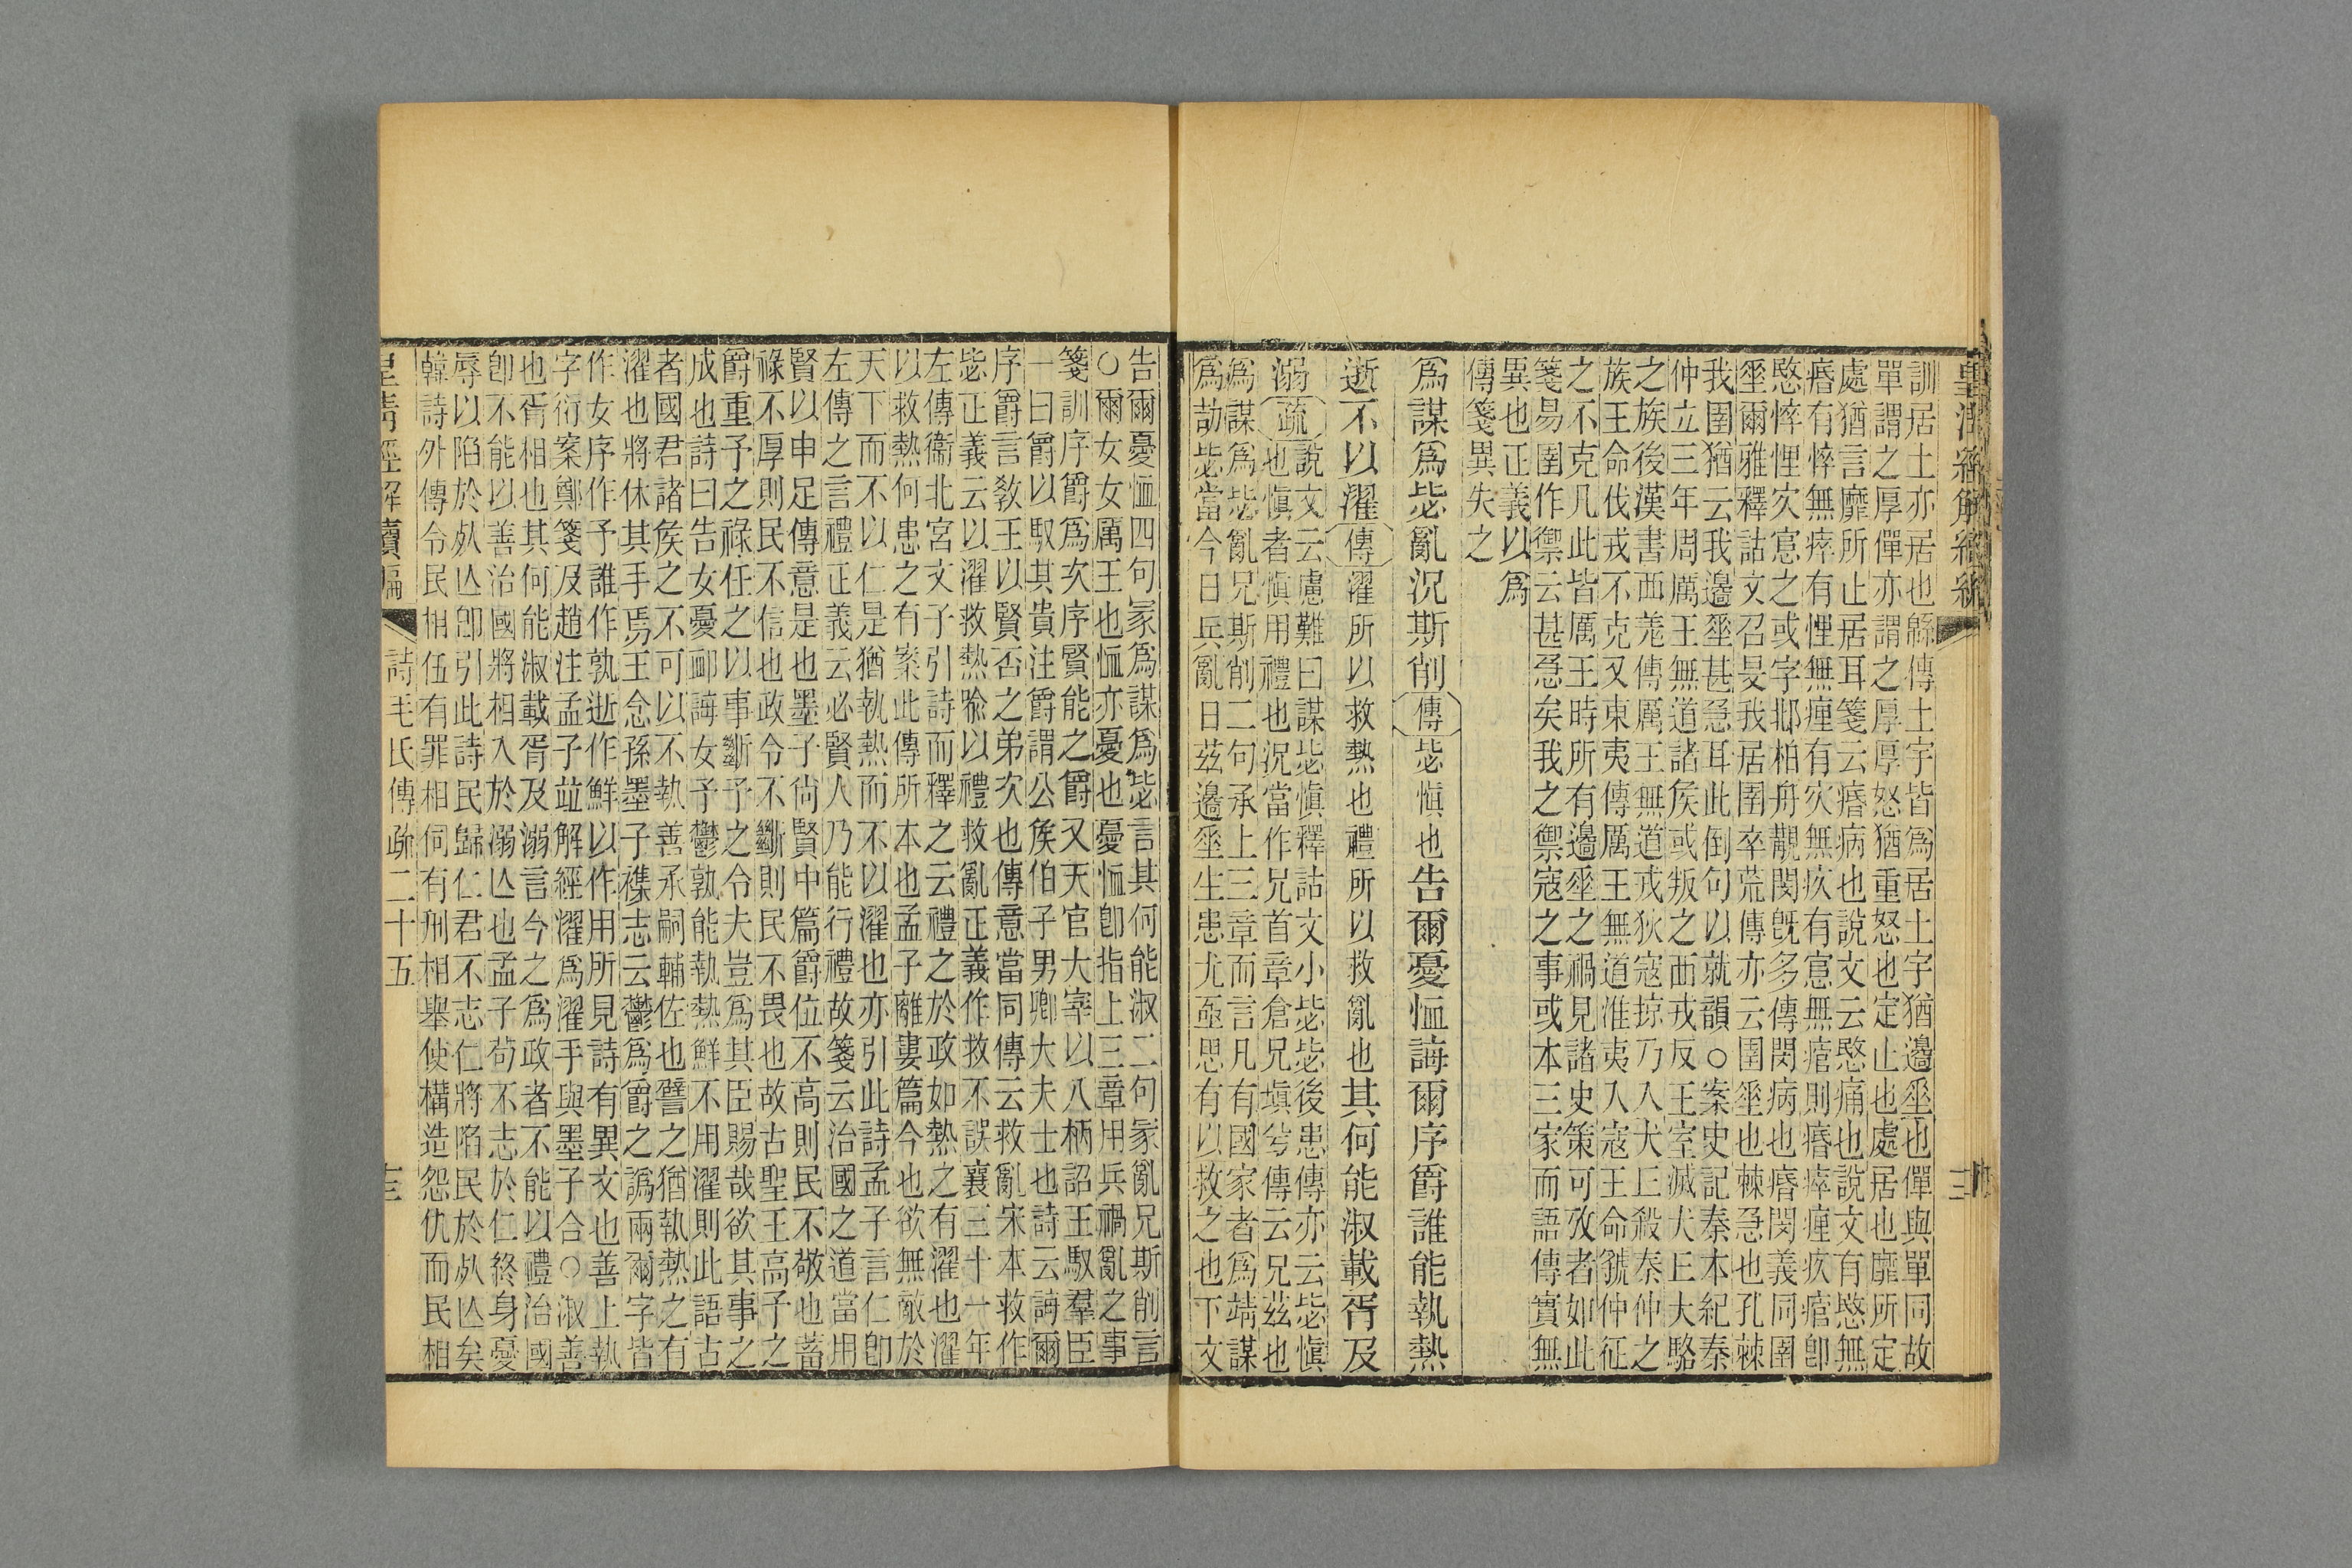 皇清經解續編
訓居土亦居也緜傳土宇皆爲居土宇猶邊垂也僤與單同故
單謂之厚僤亦謂之厚厚怒猶重怒也定止也處居也靡所定
處猶言靡所止居耳箋云痻病也說文云愍痛也說文有愍無
痻有悴無瘁有悝無㾖有㝌無疚有悹無痯則痻瘁㾖疚痯卽
愍悴悝㝌悹之或字邶柏舟覯閔旣多傳閔病也痻閔義同圉
垂爾雅釋詁文召旻我居圉卒荒傳亦云圉垂也棘急也孔棘
我圉猶云我邊垂甚急耳此倒句以就韻○案史記秦本紀秦
仲立三年周厲王無道諸矦或叛之西戎反王室滅犬丘大駱
之族後漢書西羌傳厲王無道戎狄寇掠乃入犬丘殺秦仲之
族王命伐戎不克又東夷傳厲王無道淮夷入寇王命虢仲征
之不克凡此皆厲王時所有邊垂之禍見諸史策可攷者如此
箋易圉作禦云甚急矣我之禦寇之事或本三家而語傳實無
異也正義以爲
傳箋異失之
爲謀爲毖亂況斯削傳毖愼也告爾憂恤誨爾序爵誰能執熱
逝不以濯傳濯所以救熱也禮所以救亂也其何能淑載胥及
溺疏說文云慮難曰謀毖愼釋詁文小毖毖後患傳亦云毖愼
也愼者愼用禮也況當作兄首章倉兄塡兮傳云兄茲也
爲謀爲毖亂兄斯削二句承上三章而言凡有國家者爲靖謀
爲劼毖當今日兵亂日茲邊垂生患尤亟思有以救之也下文
告爾憂恤四句冡爲謀爲毖言其何能淑二句冡亂兄斯削言
○爾女女厲王也恤亦憂也憂恤卽指上三章用兵禍亂之事
箋訓序爵爲次序賢能之爵又天官大宰以八柄詔王馭羣臣
一曰爵以馭其貴注爵謂公矦伯子男卿大夫士也詩云誨爾
序爵言敎王以賢否之弟次也傳意當同傳云救亂宋本救作
毖正義云以濯救熱喩以禮救亂正義作救不誤襄三十一年
左傳衞北宮文子引詩而釋之云禮之於政如熱之有濯也濯
以救熱何患之有案此傳所本也孟子離婁篇今也欲無敵於
天下而不以仁是猶執熱而不以濯也亦引此詩孟子言仁卽
左傳之言禮正義云必賢人乃能行禮故箋云治國之道當用
賢以申足傳意是也墨子尙賢中篇爵位不高則民不敬也蓄
祿不厚則民不信也政令不斷則民不畏也故古聖王高予之
爵重予之祿任之以事斷予之令夫豈爲其臣賜哉欲其事之
成也詩曰告女憂卹誨女予鬱孰能執熱鮮不用濯則此語古
者國君諸矦之不可以不執善承嗣輔佐也譬之猶執熱之有
濯也將休其手焉王念孫墨子襍志云鬱爲爵之譌兩爾字皆
作女序作予誰作孰逝作鮮以作用所見詩有異文也善上執
字衍案鄭箋及趙注孟子竝解經濯爲濯手與墨子合○淑善
也胥相也其何能淑載胥及溺言今之爲政者不能以禮治國
卽不能以善治國將相入於溺亾也孟子苟不志於仁終身憂
辱以陷於㱙亾卽引此詩民歸仁君不志仁將陷民於㱙亾矣
韓詩外傳令民相伍有罪相伺有刑相舉使構造怨仇而民相
皇清經解續編　詩毛氏傳疏二十五